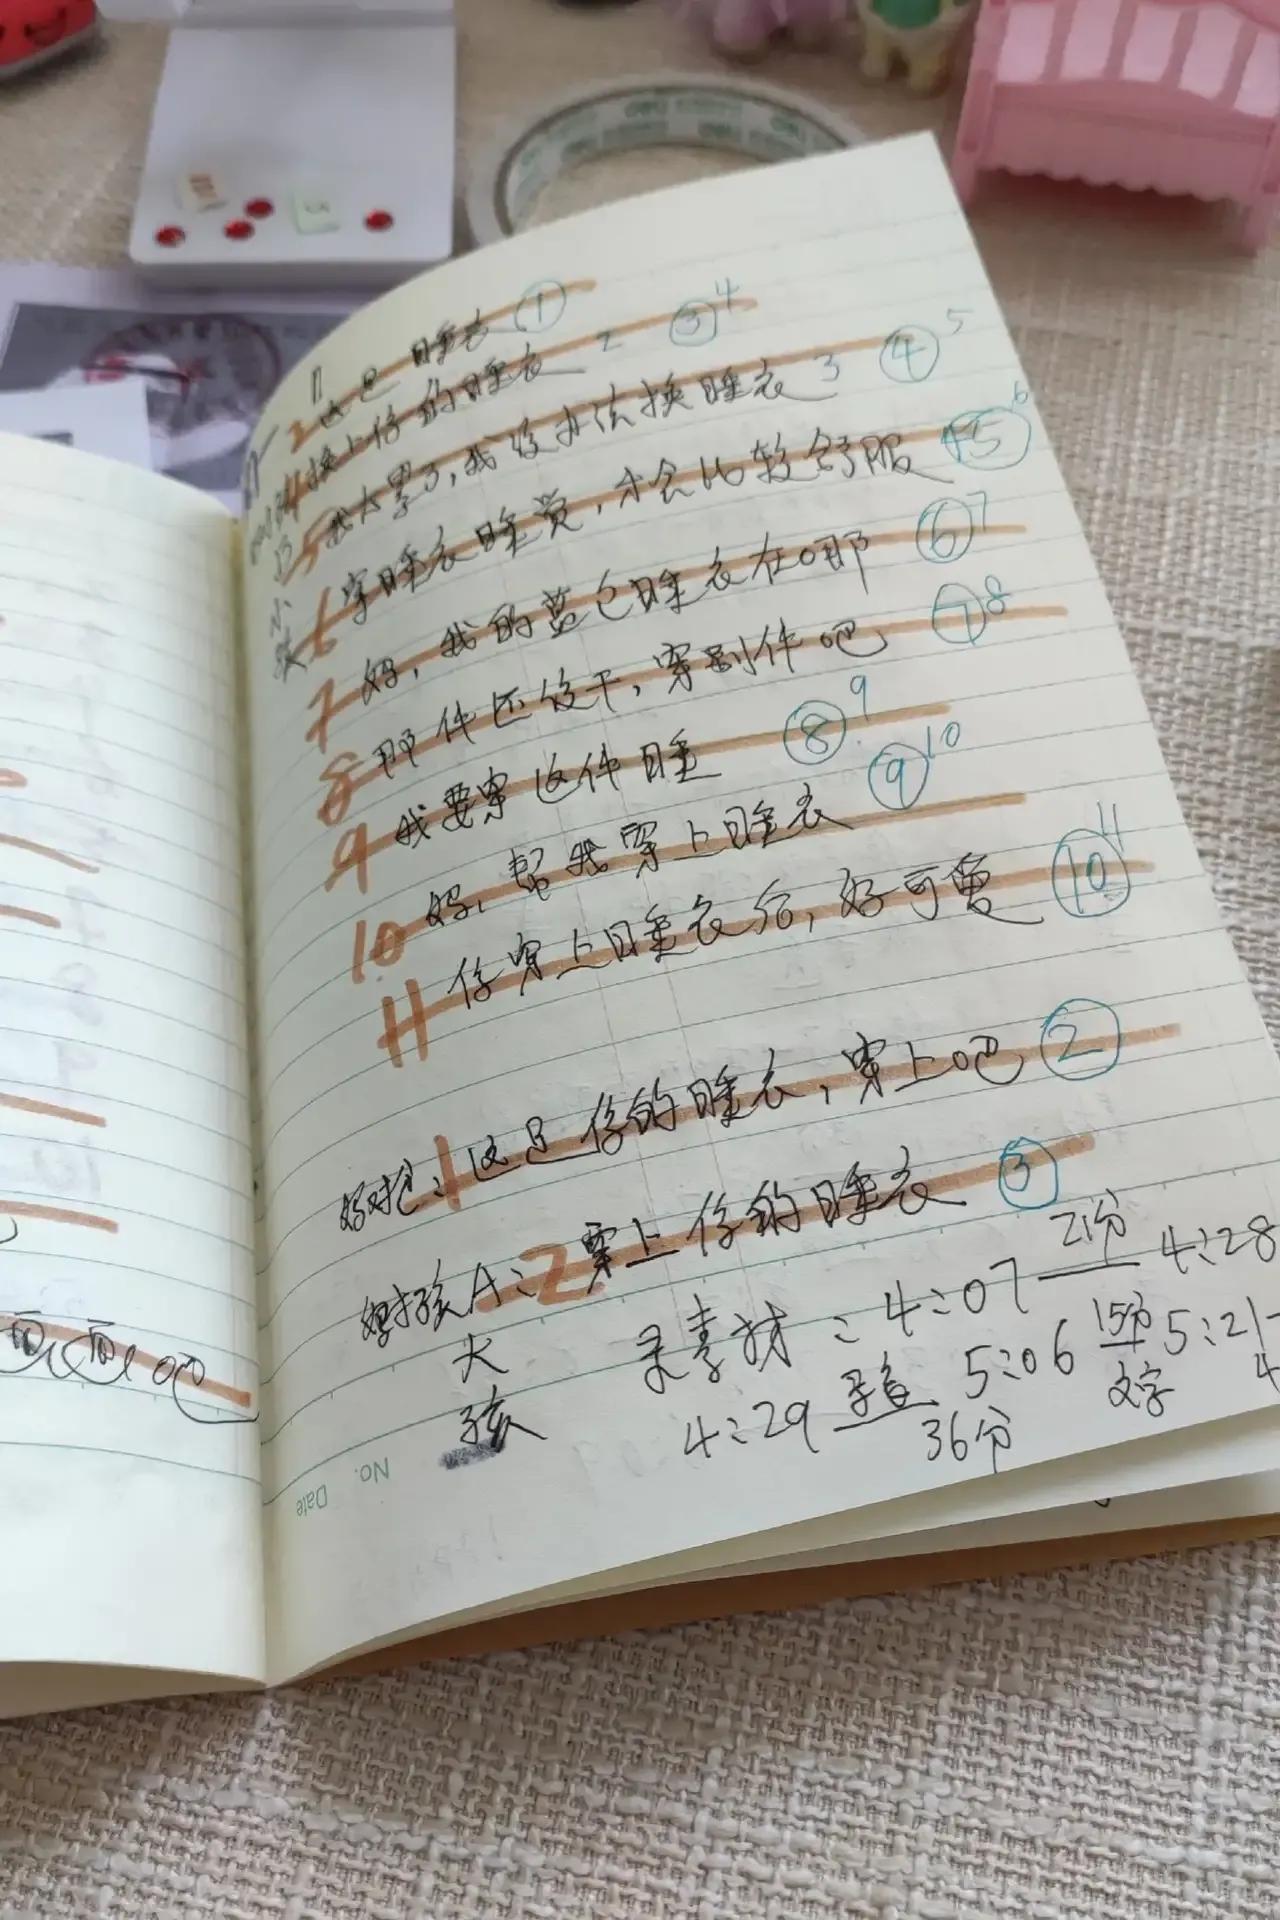 这是睡衣 ①
换上你的睡衣 2 ③ 4
5 我太累了,我没办法换睡衣 3 ④ 5
6 穿睡衣睡觉,才会比较舒服 ⑤ 6
7 妈,我的蓝色睡衣在哪 ⑥ 7
8 那件还没干,穿别件吧 ⑦ 8
9 我要穿这件睡 ⑧ 9
10 妈,帮我穿上睡衣 ⑨ 10
11 你穿上睡衣后,好可爱 ⑩ 11
1 这是你的睡衣,穿上吧 ②
A: 2 穿上你的睡衣 ③
大
孩
录素材:4:07 21分 4:28
4:29 录音 5:06 15分 5:21
36分 文字
No.
Date